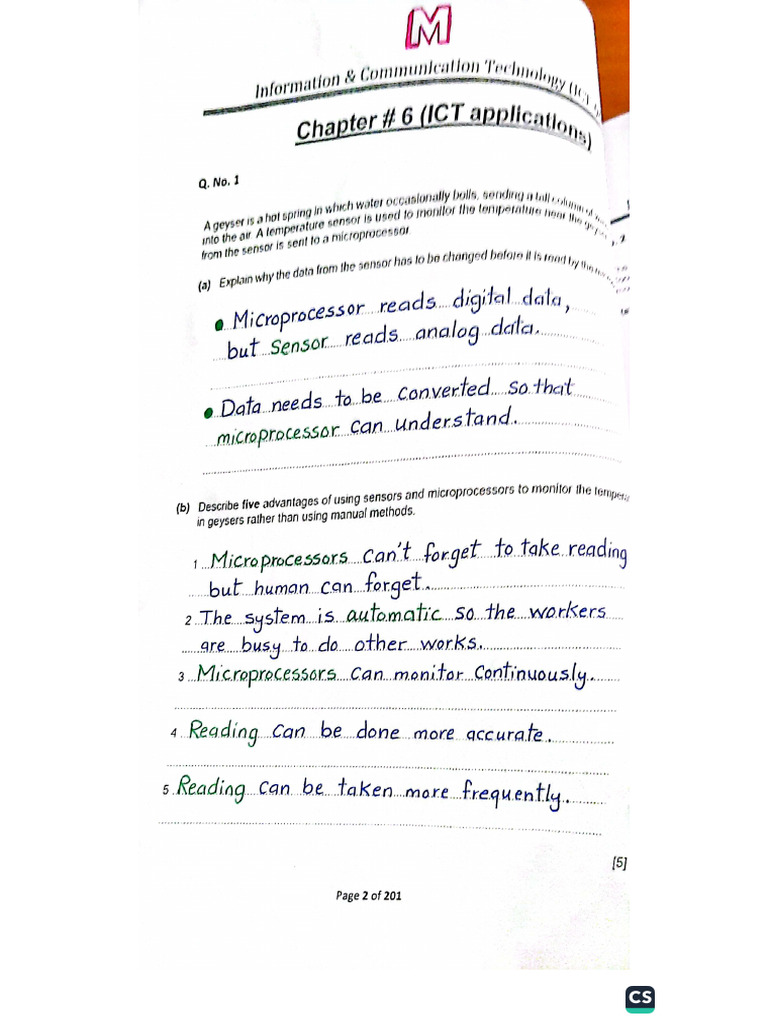 M
Information & Communication Technology (ICT
Chapter # 6 (ICT applications)
Q. No. 1
A geyser is a hot spring in which water occasionally boils, sending a tall column of
into the air. A temperature sensor is used to monitor the temperature near the
from the sensor is sent to a microprocessor
(a) Explain why the data from the sensor has to be changed before it is read by the
• Microprocessor reads digital data,
but Sensor reads analog data.
• Data needs to be Converted so that
microprocessor can understand.
(b) Describe five advantages of using sensors and microprocessors to monitor the tempera
in geysers rather than using manual methods.
1 Microprocessors can't forget to take reading
but human can forget.
2 The system is automatic so the workers
are busy to do other works.
3 Microprocessors can monitor continuously.
4 Reading can be done more accurate.
5 Reading can be taken more frequently.
[5]
Page 2 of 201
CS